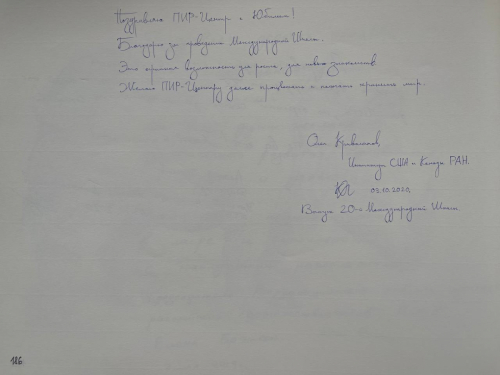 Поздравляю ПИР-Центр с Юбилеем!
Благодарю за проведение Международной Школы.
Это отличная возможность для роста, для новых знакомств.
Желаю ПИР-Центру далее процветать и
Института США и Канады РАН.
03.10.2020
Выпуск 20-й Международной Школы.
116